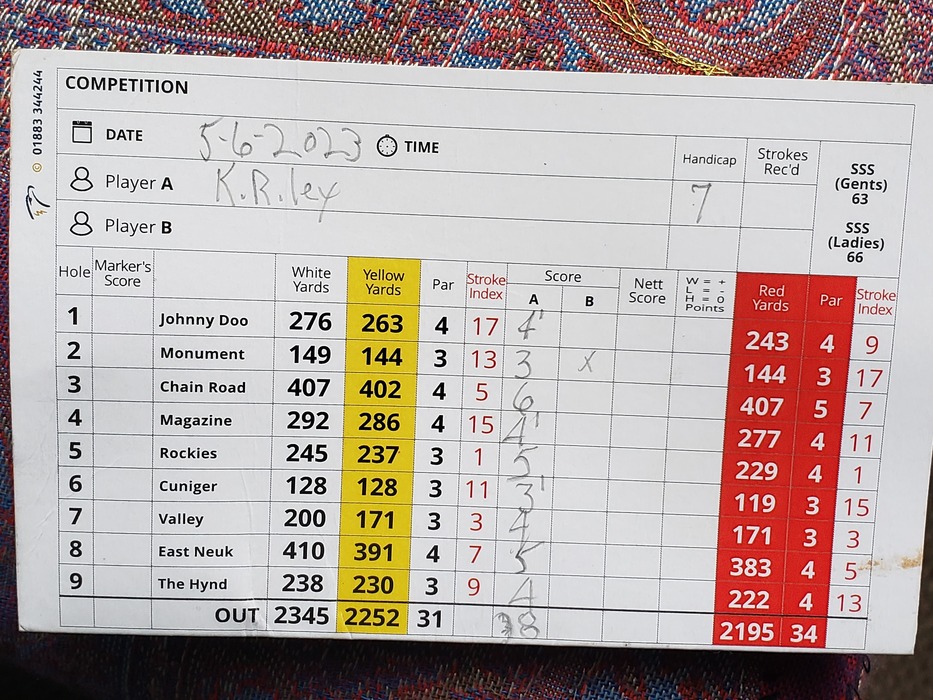 © 01883 344244
COMPETITION
DATE 5-6-2023 TIME
Player A K.Riley
Player B
Handicap 7
Strokes Rec'd
SSS (Gents) 63
SSS (Ladies) 66
Hole Marker's Score White Yards Yellow Yards Par Stroke Index Score A B Nett Score W = + L = - H = 0 Points Red Yards Par Stroke Index
1 Johnny Doo 276 263 4 17 4' 243 4 9
2 Monument 149 144 3 13 3 X 144 3 17
3 Chain Road 407 402 4 5 6 407 5 7
4 Magazine 292 286 4 15 4' 277 4 11
5 Rockies 245 237 3 1 5 229 4 1
6 Cuniger 128 128 3 11 3' 119 3 15
7 Valley 200 171 3 3 4 171 3 3
8 East Neuk 410 391 4 7 5 383 4 5
9 The Hynd 238 230 3 9 4 222 4 13
OUT 2345 2252 31 38 2195 34